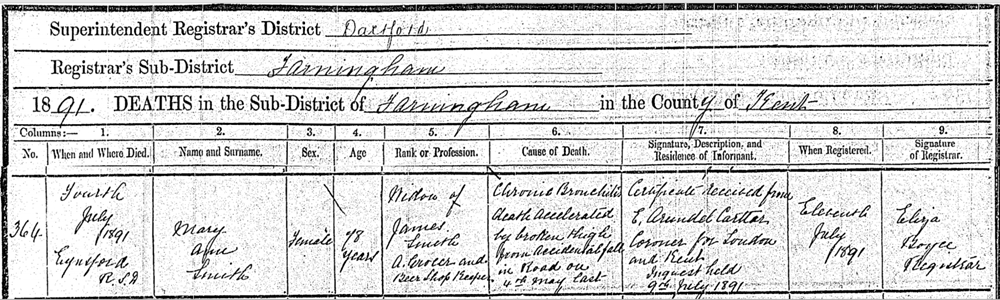 Superintendent Registrar's District Dartford
Registrar's Sub-District Farningham
1891. DEATHS in the Sub-District of Farningham in the County of Kent
Columns:— 1. 2. 3. 4. 5. 6. 7. 8. 9.
No. When and Where Died. Name and Surname. Sex. Age Rank or Profession. Cause of Death. Signature, Description, and Residence of Informant. When Registered. Signature of Registrar.
364
Fourth
July
1891
Eynsford
R.S.D
Mary
Ann
Smith
Female
78
years
Widow of
James
Smith
A Grocer and
Beer Shop Keeper
Chronic Bronchitis
death accelerated
by broken thigh
from accidental fall
in Road on
4th May last
Certificate received from
E. Arundel Carttar
Coroner for London
and Kent
Inquest held
9th July 1891
Eleventh
July
1891
Eliza
Boyce
Registrar